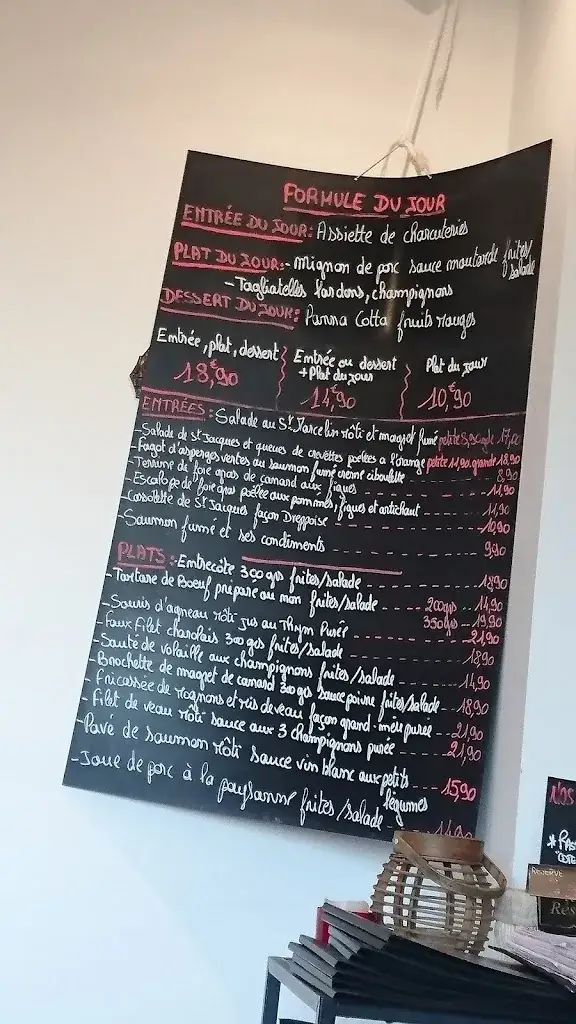 FORMULE DU JOUR
ENTRÉE DU JOUR: Assiette de charcuteries
PLAT DU JOUR:- Mignon de porc sauce moutarde frites/salade
- Tagliatelles lardons, champignons
DESSERT DU JOUR: Panna Cotta fruits rouges
Entrée, plat, dessert
18,€90
Entrée ou dessert
+ Plat du jour
14,€90
Plat du jour
10,€90
ENTRÉES: Salade au St Marcelin rôti et magret fumé petite 8,90 gde 17,00
-Salade de St Jacques et queues de crevettes poêlées a l'orange petite 11,90 grande 18,90
-Fagot d'asperges vertes au saumon fumé creme ciboulette 8,90
-Terrine de foie gras de canard aux figues 11,90
-Escalope de foie gras poêlée aux pommes, figues et artichaut 11,90
-Cassolette de St Jacques façon Dieppoise 10,90
-Saumon fumé et ses condiments 9,90
PLATS:-Entrecôte 300 grs frites/salade 18,90
-Tartare de Boeuf préparé ou non frites/salade 200grs 14,90
350grs 19,90
-Souris d'agneau rôti jus au Thym Purée 21,90
-Faux Filet charolais 300 grs frites/salade 18,90
-Sauté de volaille aux champignons frites/salade 14,90
-Brochette de magret de canard 300 grs sauce poivre frites/salade 18,90
-Fricassée de rognons et ris de veau façon grand-mère purée 21,90
-Filet de veau rôti sauce aux 3 champignons purée 21,90
-Pavé de saumon rôti sauce vin blanc aux petits légumes 15,90
-Joue de porc à la paysanne frites/salade 14,90
NOS
RESERVE
Rés